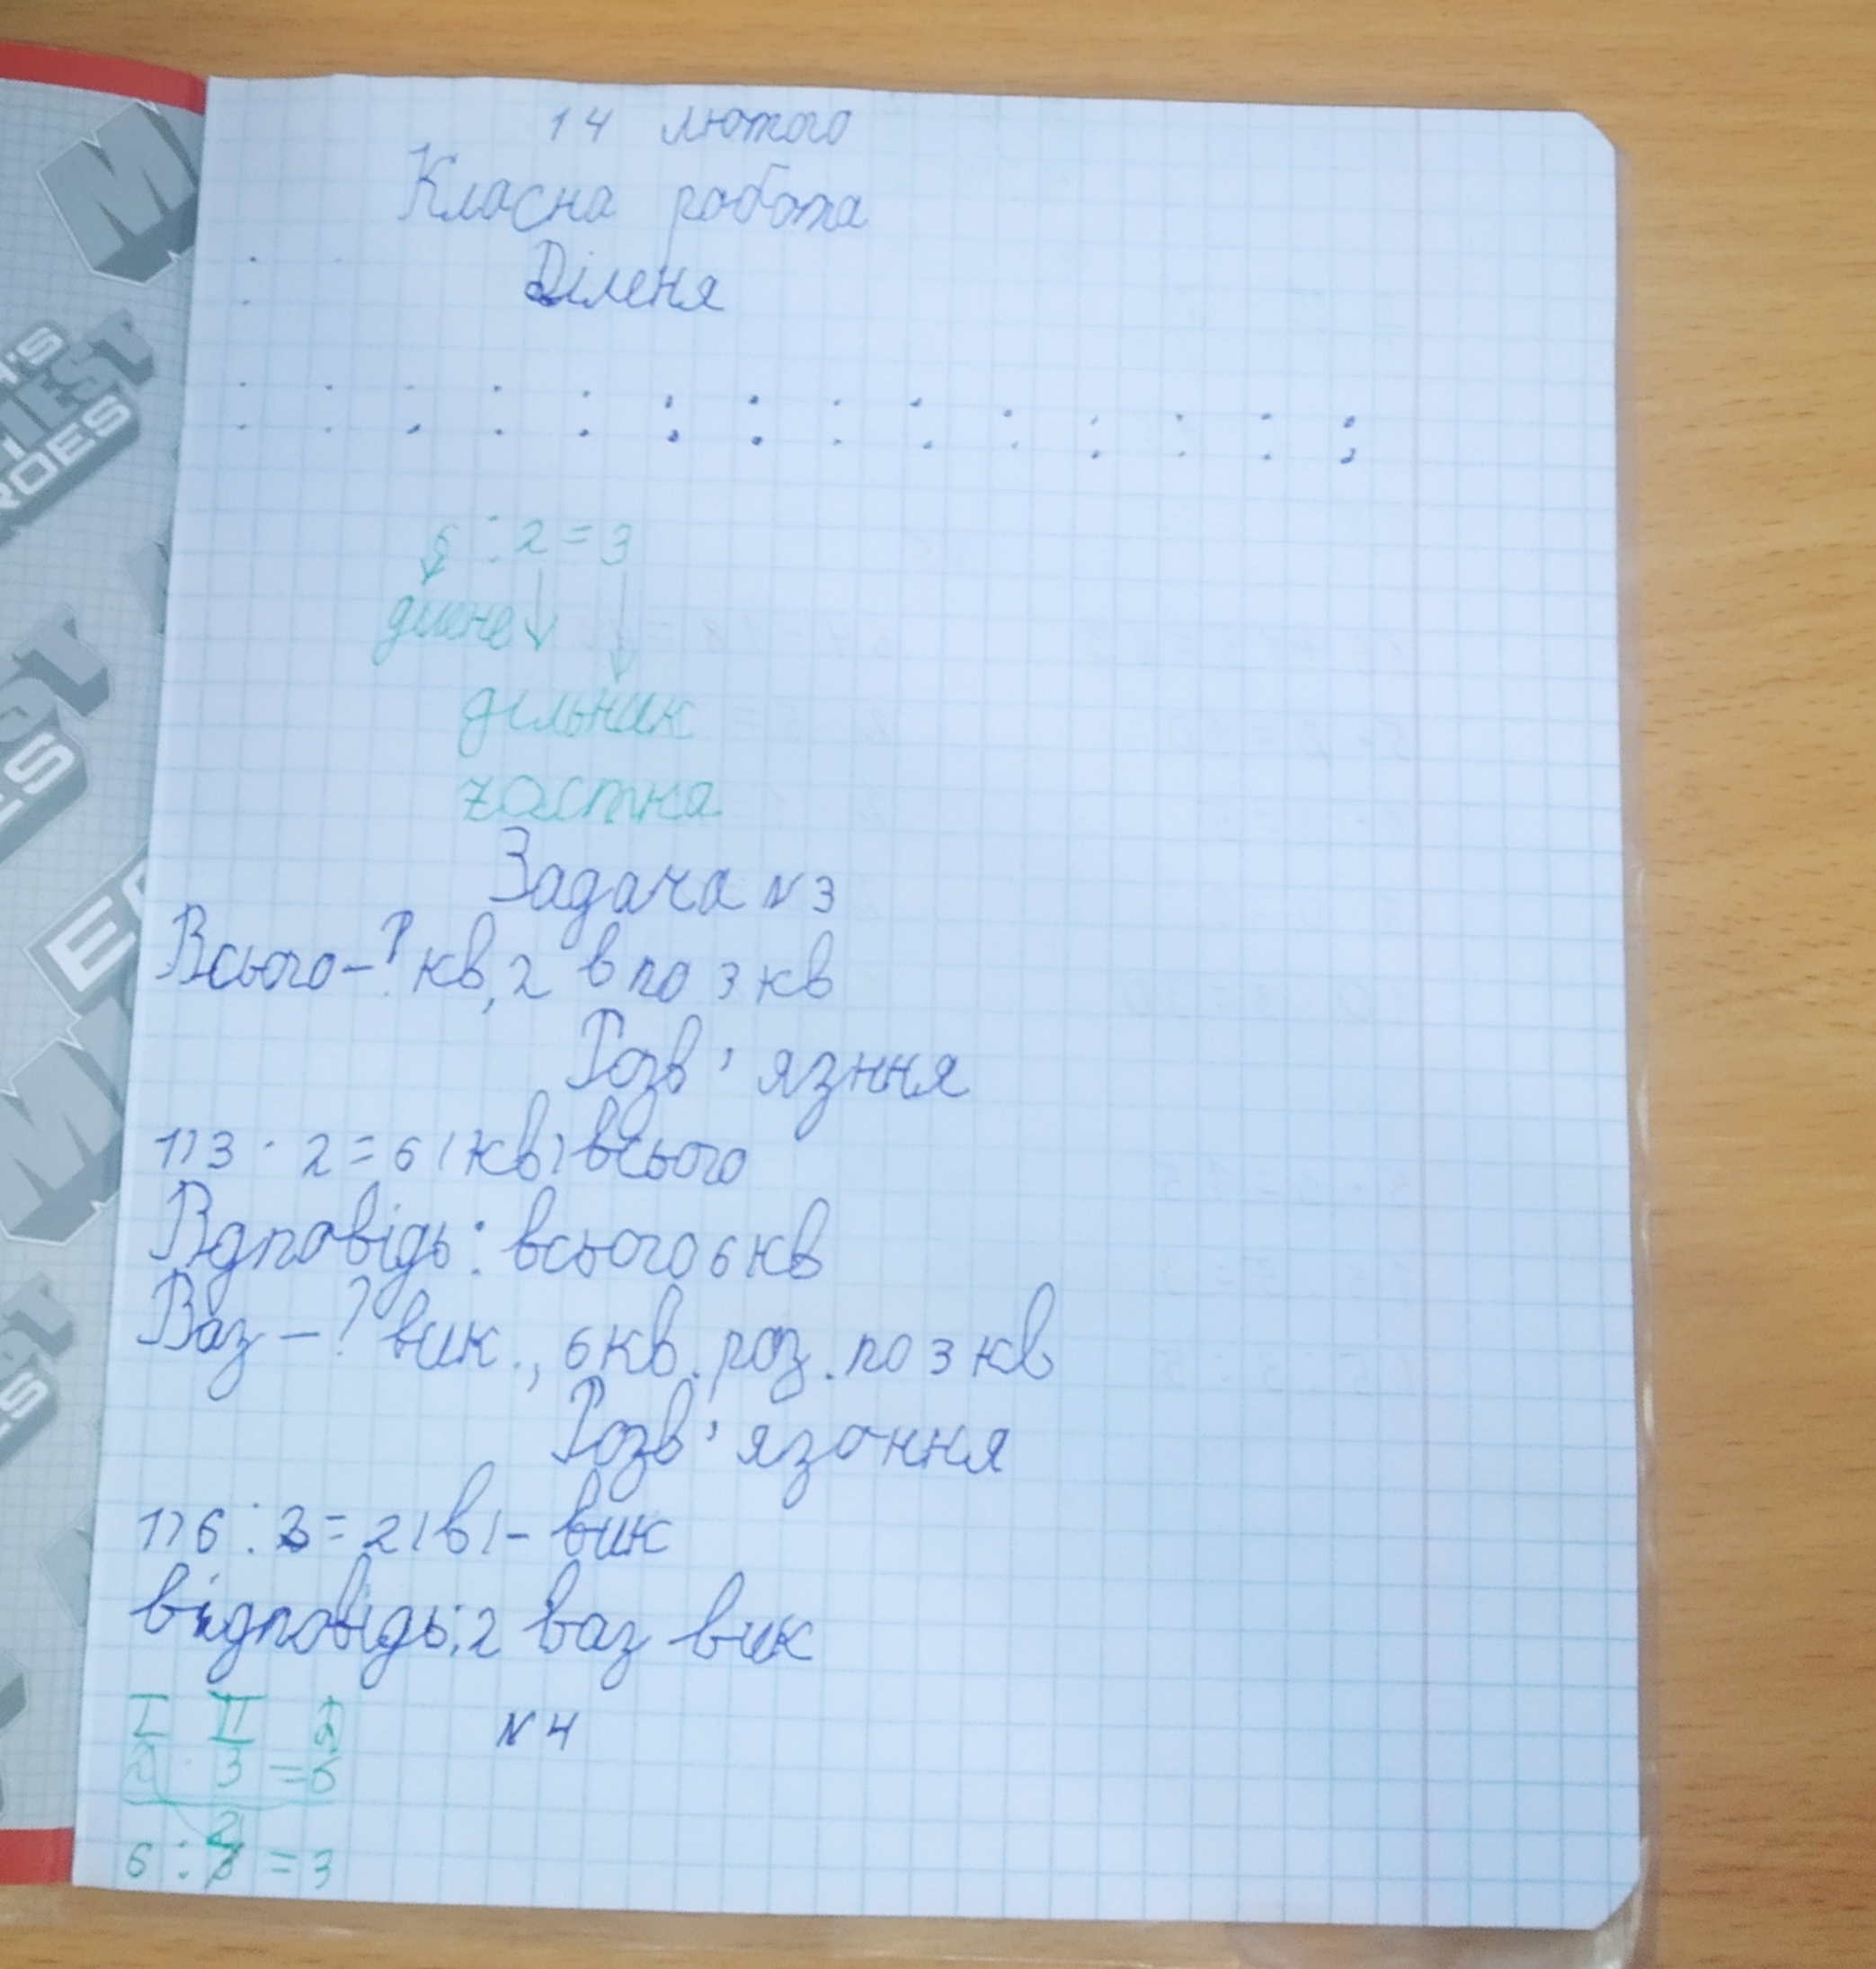 14 лютого
Класна робота
Діленя
: : : : : : : : : : : : : :
6 : 2 = 3
ділене
дільник
частка
Задача N 3
Всього – ? кв, 2 в по 3 кв
Розв'язння
1) 3 · 2 = 6 (кв) всього
Відповідь: всього 6 кв
Ваз – ? вик., 6 кв. роз. по 3 кв
Розв'язання
1) 6 : 3 = 2 (в) – вик
відповідь: 2 ваз вик
I II Д
N 4
2 · 3 = 6
2
6 : 3 = 3